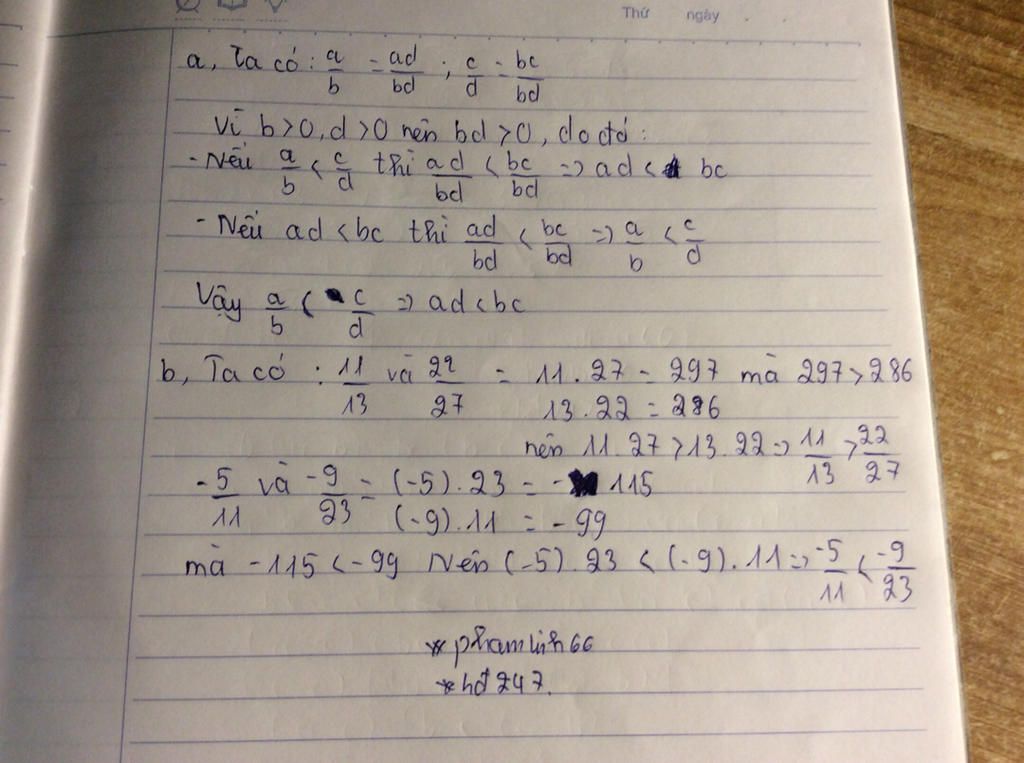 Thứ ngày
a, Ta có : a/b = ad/bd ; c/d = bc/bd
Vì b > 0, d > 0 nên bd > 0, do đó :
- Nếu a/b < c/d thì ad/bd < bc/bd => ad < bc
- Nếu ad < bc thì ad/bd < bc/bd => a/b < c/d
Vậy a/b < c/d => ad < bc
b, Ta có : 11/13 và 22/27 = 11 . 27 = 297 mà 297 > 286
13 . 22 = 286
nên 11 . 27 > 13 . 22 => 11/13 > 22/27
-5/11 và -9/23 = (-5) . 23 = -115
(-9) . 11 = -99
mà -115 < -99 Nên (-5) . 23 < (-9) . 11 => -5/11 < -9/23
*phamlinh66
*hđ247.